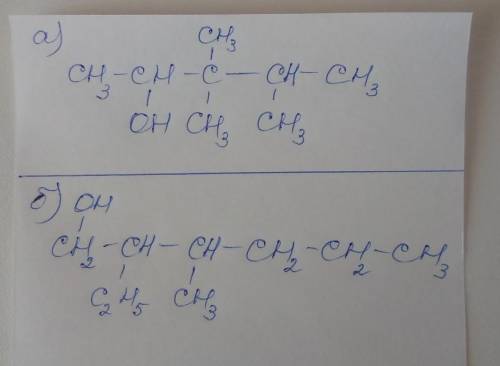 а)
CH3
CH3-CH-C-CH-CH3
OH CH3 CH3
б) OH
CH2-CH-CH-CH2-CH2-CH3
C2H5 CH3